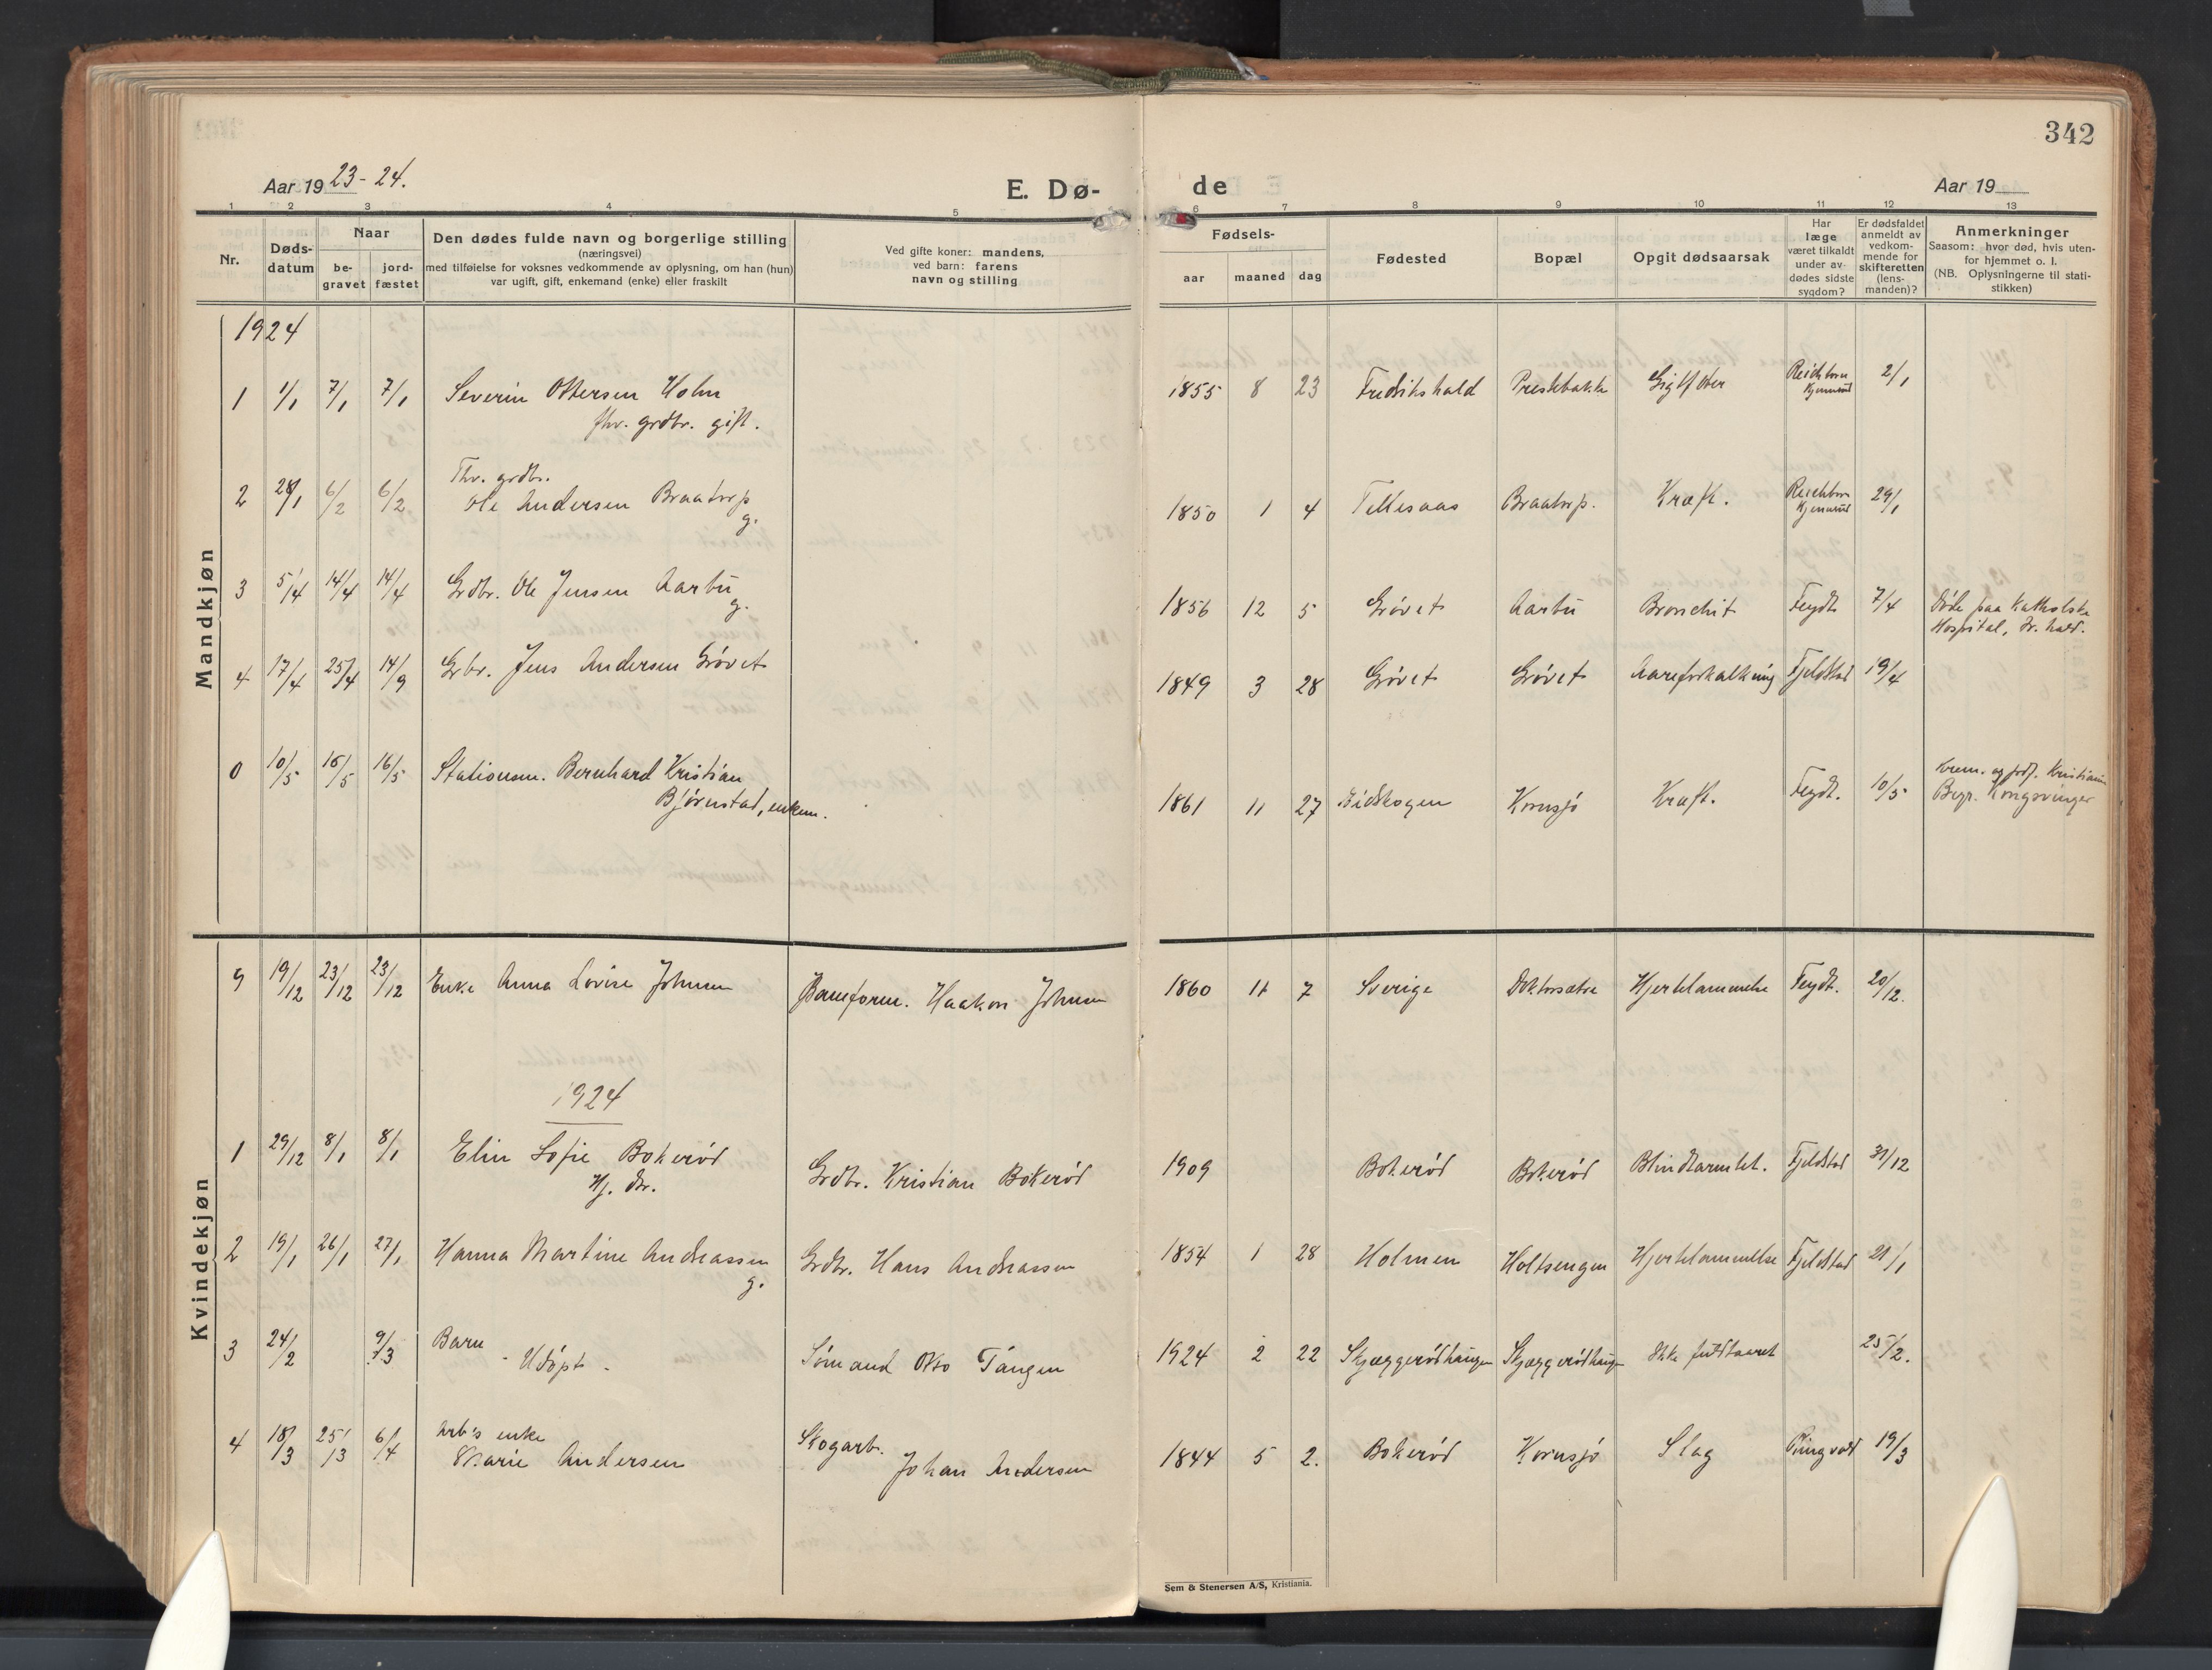 342
Aar 1923-24.
E. Dø-
de
Aar 19
1 2 3 4 5 6 7 8 9 10 11 12 13
Nr.
Døds-
datum
Naar
be-
gravet
jord-
fæstet
Den dødes fulde navn og borgerlige stilling
(næringsvei)
med tilføielse for voksnes vedkommende av oplysning, om han (hun)
var ugift, gift, enkemand (enke) eller fraskilt
Ved gifte koner: mandens,
ved barn: farens
navn og stilling
Fødsels-
aar maaned dag
Fødested
Bopæl
Opgit dødsaarsak
Har
læge
været tilkaldt
under av-
dødes sidste
sygdom?
Er dødsfaldet
anmeldt av
vedkom-
mende for
skifteretten
(lens-
manden)?
Anmerkninger
Saasom: hvor død, hvis uten-
for hjemmet o. l.
(NB. Oplysningerne til stati-
stikken)
Mandkjøn
1924
1 1/1 7/1 7/1 Severin Ottersen Holm
fhv. grdbr. gift.
1855 8 23 Fredrikshald Prestebakke Gigtfeber Reichborn
Kjennerud 2/1
Fhv. grdbr.
2 28/1 6/2 6/2 Ole Andersen Braatorp
g.
1850 1 4 Tillesaas Braatorp. Kræft. Reichborn
Kjennerud 29/1
3 5/4 14/4 14/4 Grdbr. Ole Jensen Aarbu
g.
1856 12 5 Grövet Aarbu Bronchit Feydt 7/4 Döde paa Katholske
Hospital, Fr.hald.
4 17/4 25/4 14/9 Grbr. Jens Andersen Grövet
1849 3 28 Grövet Grövet Aareforkalkning Fjeldstad 19/4
0 10/5 16/5 16/5 Stationsm. Bernhard Kristian
Bjørnstad, enkem.
1861 11 27 Eidskogen Kornsjö Kræft. Feydt. 10/5 Krem. og jordf. Kristiania
Begr. Kongsvinger
Kvindekjøn
9 19/12 23/12 23/12 Enke Anna Lovise Johnsen Haakon Johnsen
1860 11 7 Sverige Doktorsætre Hjertelammelse Feydt. 20/12.
1924
1 29/12 8/1 8/1 Elin Sofie Bokeröd
Hj. dtr.
Grdbr. Kristian Bokeröd
1909 Bokeröd Bokeröd Blindtarmbet. Fjeldstad 31/12
2 19/1 26/1 27/1 Hanna Martine Andreassen
g.
Grdbr. Hans Andreassen
1854 1 28 Holmen Holtsengen Hjertelammelse Fjeldstad 21/1
3 24/2 9/3 Barn
- Udöpt -
Sömand Otto Tangen
1924 2 22 Skjæggerödhaugen Skjæggerödhaugen Ikke fuldbaaret 25/2.
4 18/3 25/3 6/4 Arb's enke
Marie Andersen
Skogarb.
Johan Andersen
1844 5 2. Bokeröd Kornsjö Slag Tingvold 19/3
Sem & Stenersen A/S, Kristiania.